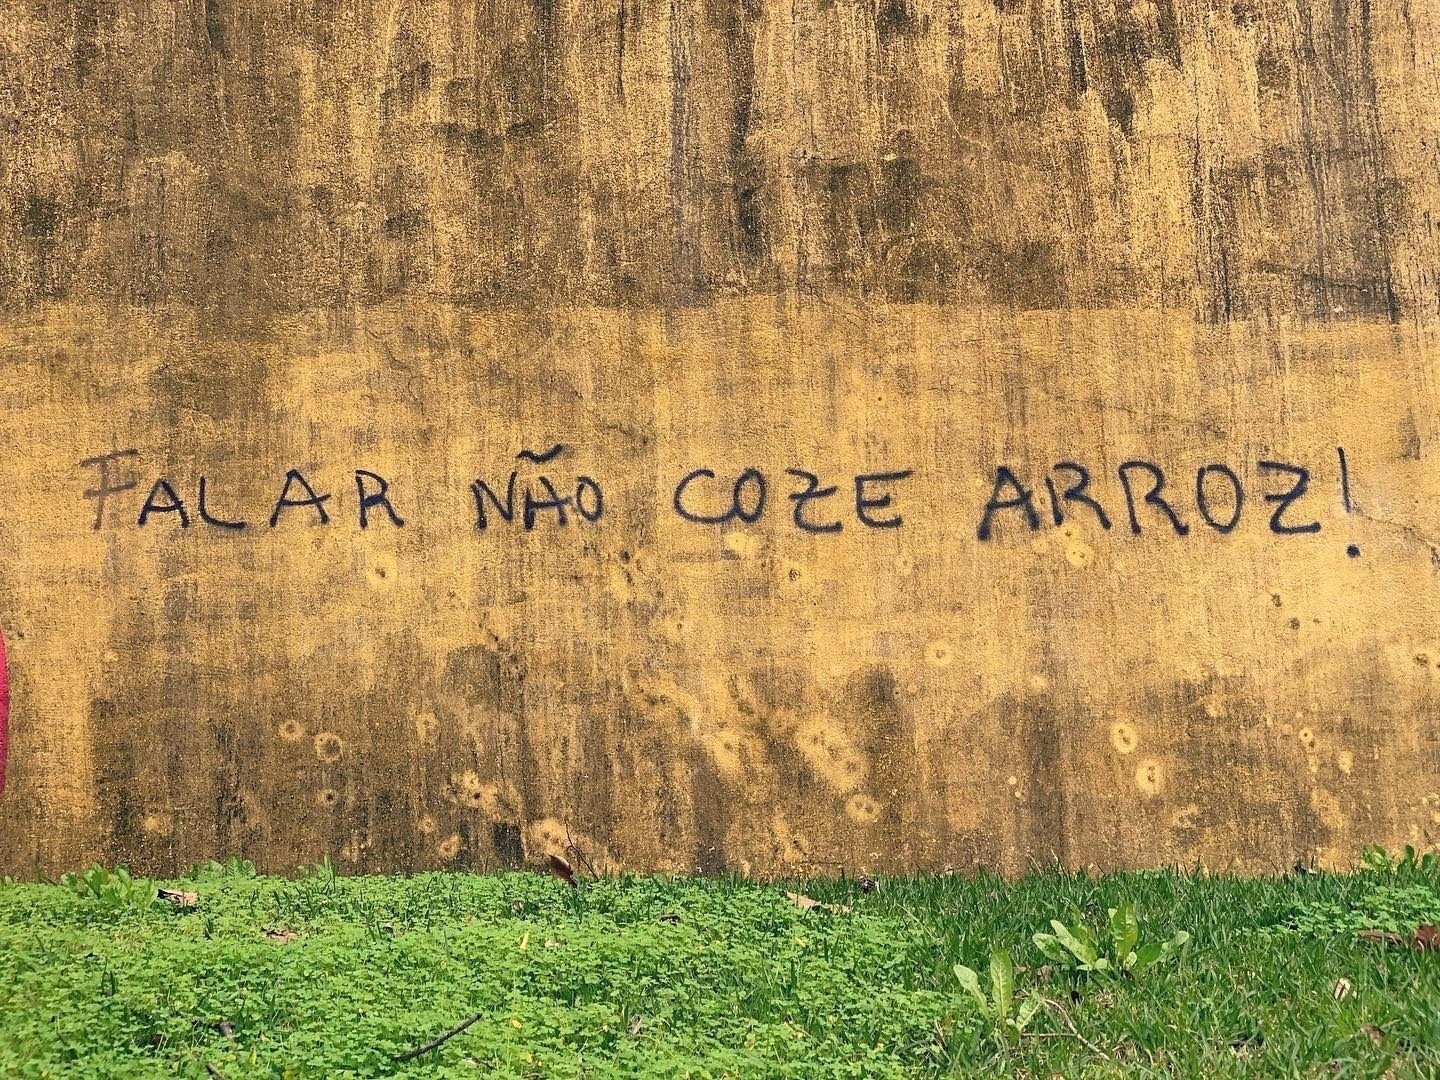 FALAR NÃO COZE ARROZ!